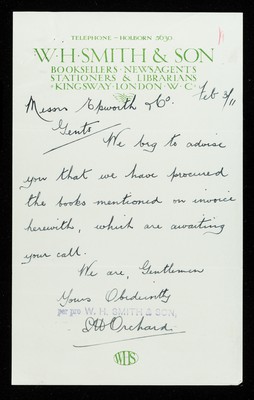 TELEPHONE - HOLBORN 5630
W·H·SMITH & SON
BOOKSELLERS·NEWSAGENTS
STATIONERS & LIBRARIANS
KINGSWAY·LONDON·W·C·
Feb 3/11
Messrs Epworth & Co
Gents
We beg to advise
you that we have procured
the books mentioned on invoice
herewith, which are awaiting
your call.
We are, Gentlemen
Yours Obediently
per pro W. H. SMITH & SON,
Orchard.
WHS